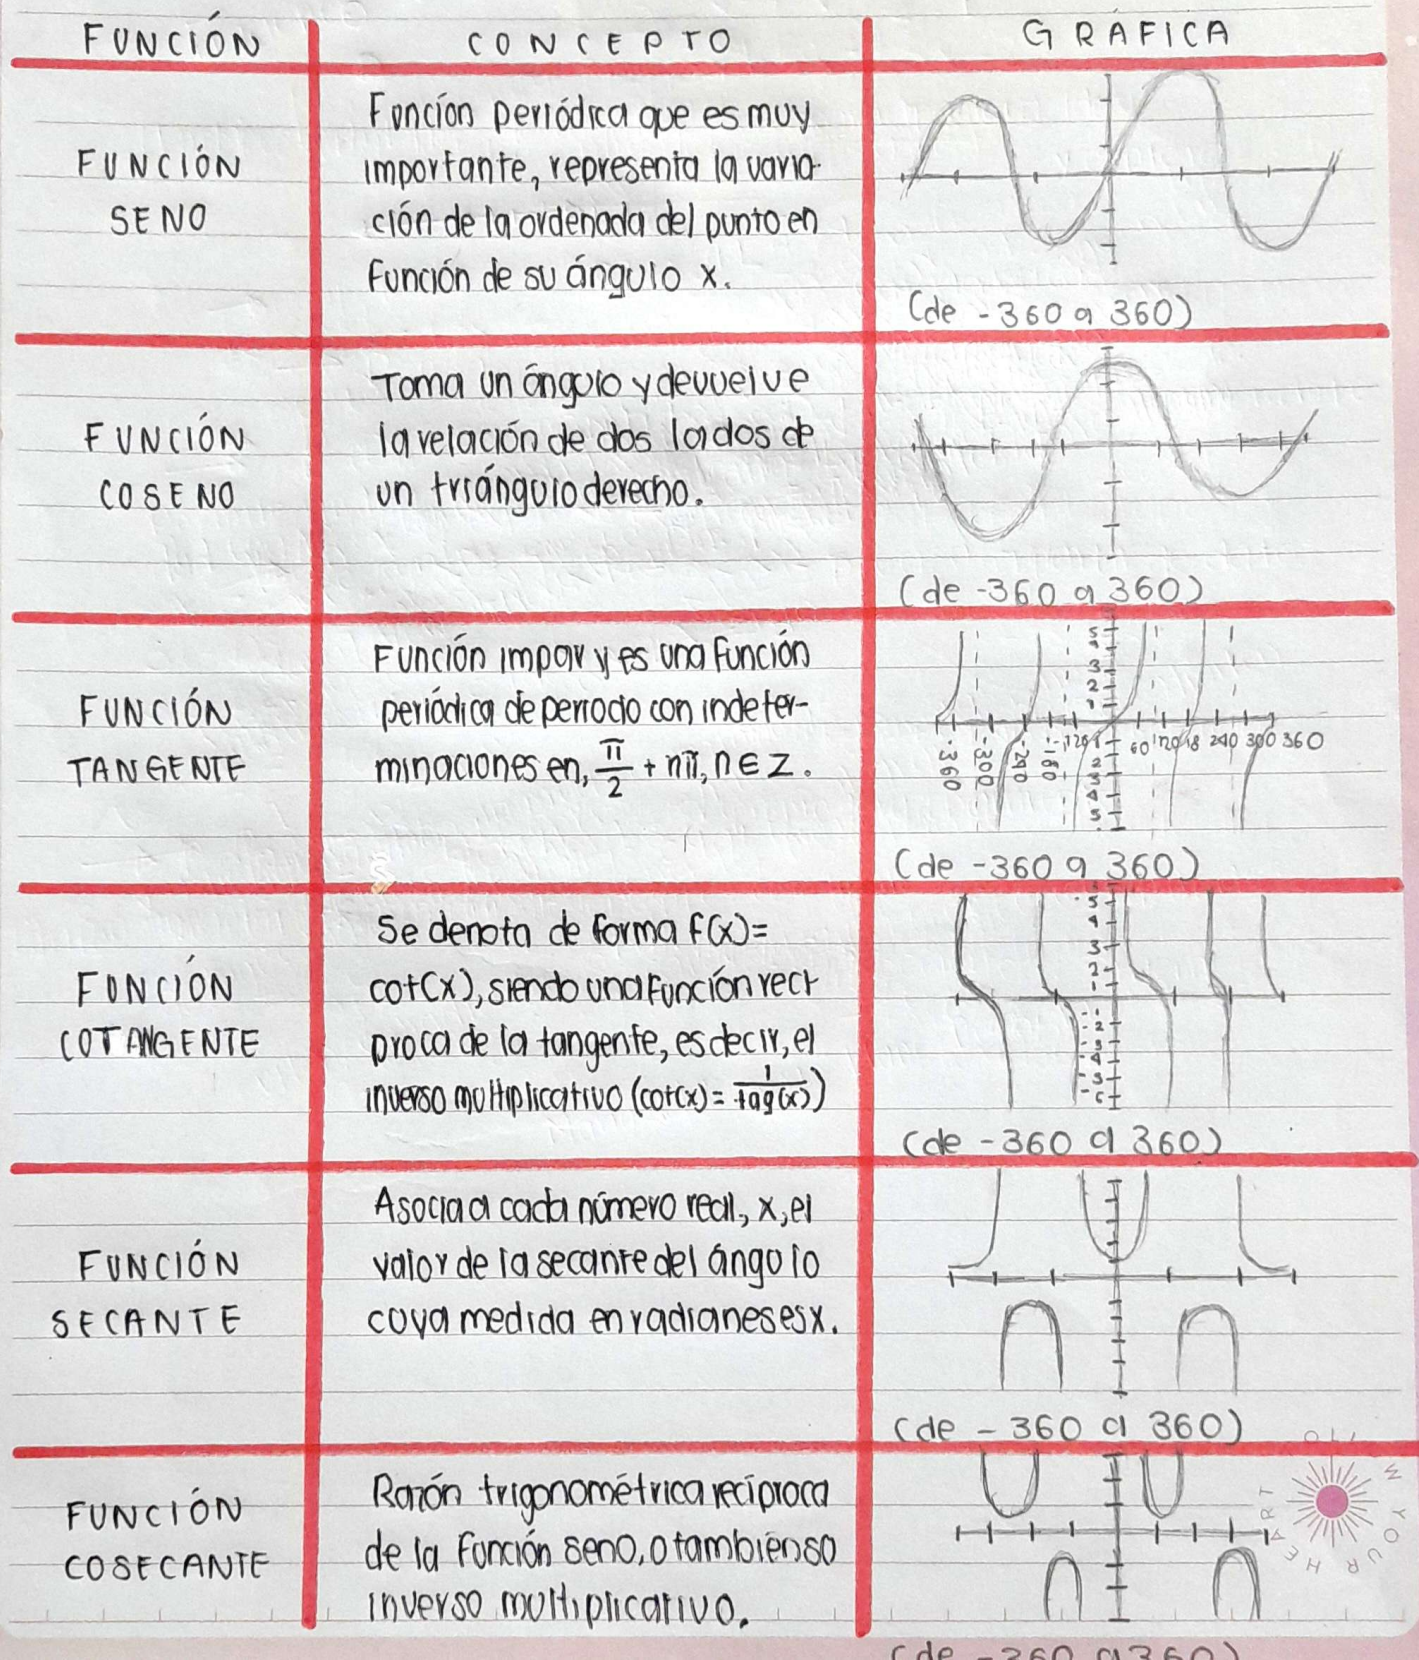 FUNCIÓN
CONCEPTO
GRÁFICA
FUNCIÓN
SENO
Función periódica que es muy
importante, representa la varia-
ción de la ordenada del punto en
función de su ángulo x.
(de -360 a 360)
FUNCIÓN
COSENO
Toma un ángulo y devuelve
la relación de dos lados de
un triángulo derecho.
(de -360 a 360)
FUNCIÓN
TANGENTE
Función impar y es una función
periódica de perrodo con indeter-
minaciones en, π/2 + nπ, n ∈ Z.
5
4
3
2
1
-360
-300
-240
-180
-120
60
120
18
240
300
360
1
2
3
4
5
(de -360 a 360)
FUNCIÓN
COTANGENTE
Se denota de forma f(x)=
cot(x), siendo una función recí
proca de la tangente, es decir, el
inverso multiplicativo (cot(x) = 1/tag(x))
5
4
3
2
1
-1
-2
-3
-4
-5
-6
(de -360 a 360)
FUNCIÓN
SECANTE
Asocia a cada número real, x, el
valor de la secante del ángulo
cuya medida en radianes es x.
(de - 360 a 360)
FUNCIÓN
COSECANTE
Razón trigonométrica recíproca
de la función seno, o también su
inverso multiplicativo.
(de -360 a 360)
YOUR HEART